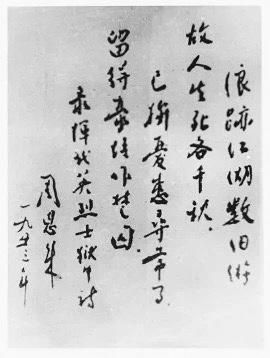 浪迹江湖数旧游
故人生死各千秋
已拚忧患寻常事
留得豪情作楚囚
录恽代英烈士狱中诗
周恩来
一九五三年